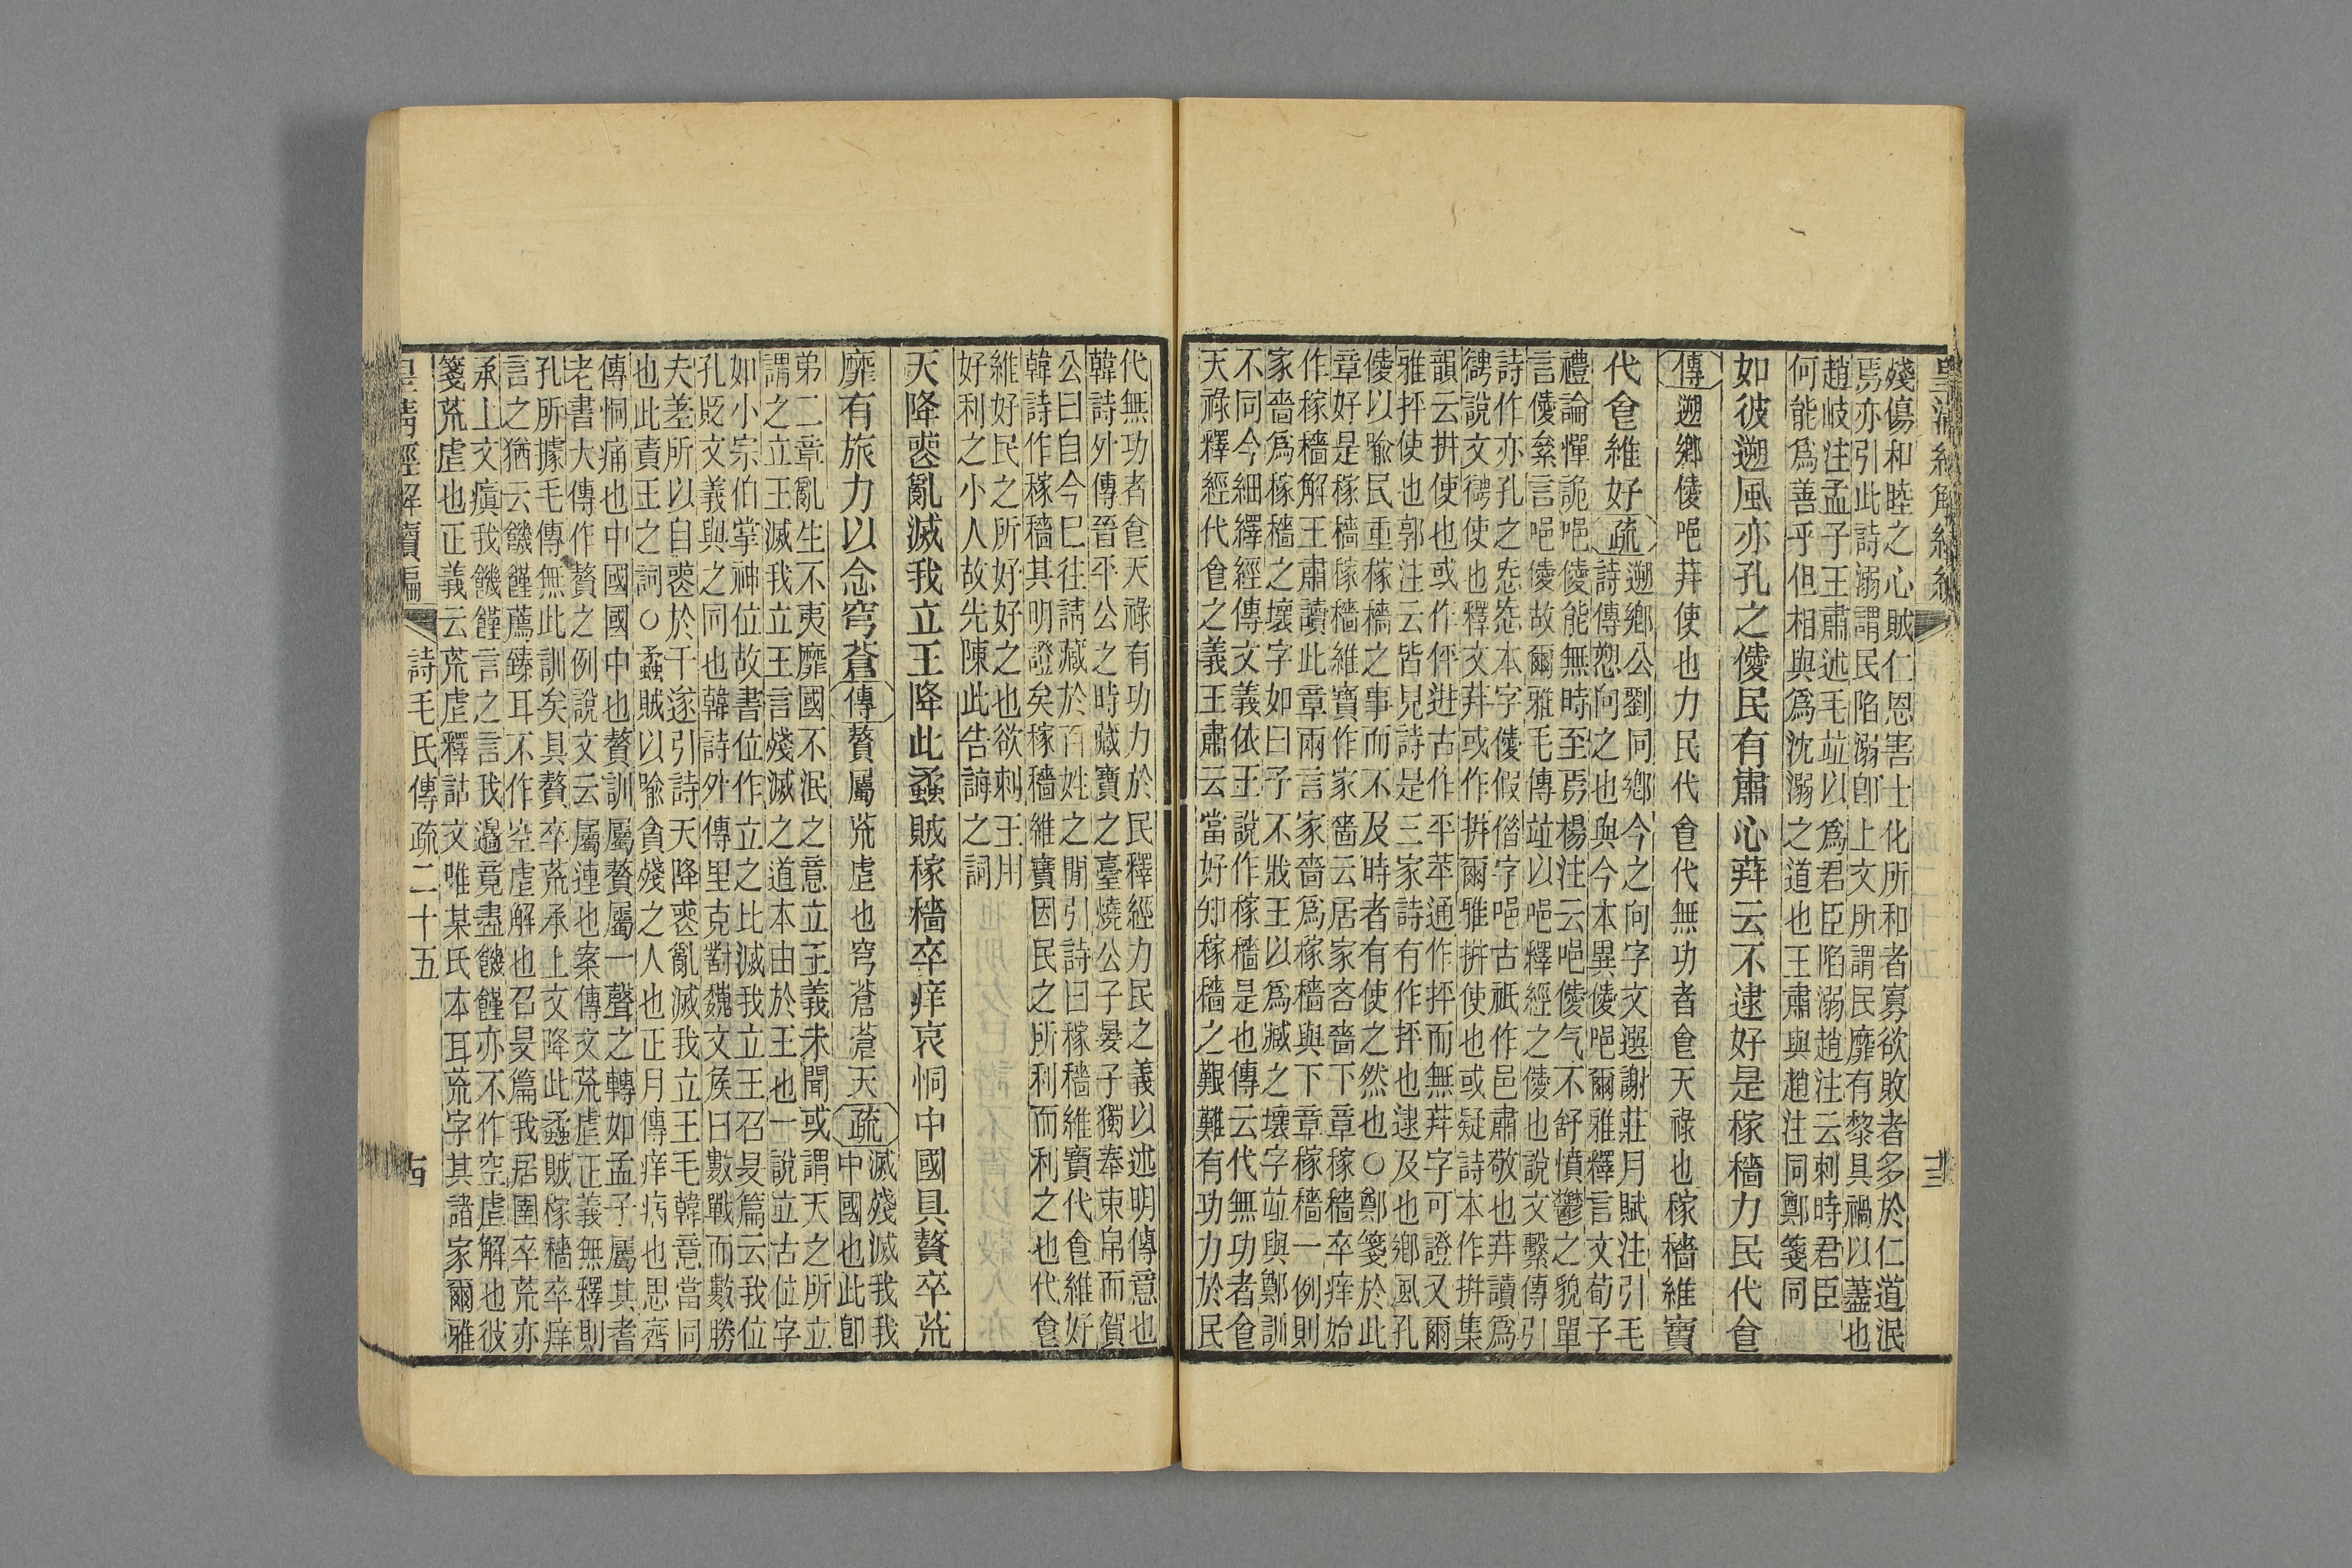 皇清經解續編
十三
殘傷和睦之心賊仁恩害士化所和者寡欲敗者多於仁道泯
焉亦引此詩溺謂民陷溺卽上文所謂民靡有黎具禍以藎也
趙岐注孟子王肅述毛竝以爲君臣陷溺趙注云刺時君臣
何能爲善乎但相與爲沈溺之道也王肅與趙注同鄭箋同
如彼遡風亦孔之僾民有肅心荓云不逮好是稼穡力民代食
傳遡鄉僾唈荓使也力民代食代無功者食天祿也稼穡維寶
代食維好疏
遡鄉公劉同鄉今之向字文選謝莊月賦注引毛
詩傳愬向之也與今本異僾唈爾雅釋言文荀子
禮論憚詭唈僾能無時至焉楊注云唈僾气不舒憤鬱之貌單
言僾絫言唈僾故爾雅毛傳竝以唈釋經之僾也說文繫傳引
詩作亦孔之㤅㤅本字僾假偺字唈古祇作邑肅敬也荓讀爲
德說文德使也釋文荓或作拼爾雅拼使也或疑詩本作拼集
韻云拼使也或作伻迸古作平苹通作抨而無荓字可證又爾
雅抨使也郭注云皆見詩是三家詩有作抨也逮及也鄉風孔
僾以喩民重稼穡之事而不及時者有使之然也○鄭箋於此
章好是稼穡稼穡維寶作家嗇云居家吝嗇下章稼穡卒痒始
作稼穡解王肅讀此章兩言家嗇爲稼穡與下章稼穡一例則
家嗇爲稼穡之壞字如曰子不戕王以爲臧之壞字竝與鄭訓
不同今細繹經傳文義依王說作稼穡是也傳云代無功者食
天祿釋經代食之義王肅云當好知稼穡之艱難有功力於民
代無功者食天祿有功力於民釋經力民之義以述明傳意也
韓詩外傳晉平公之時藏寶之臺燒公子晏子獨奉束帛而賀
公曰自今巳往請藏於百姓之閒引詩曰稼穡維寶代食維好
韓詩作稼穡其明證矣稼穡維寶因民之所利而利之也代食
維好民之所好好之也欲刺王用
好利之小人故先陳此告誨之詞
天降喪亂滅我立王降此蟊賊稼穡卒痒哀恫中國具贅卒荒
靡有旅力以念穹蒼傳贅屬荒虛也穹蒼蒼天疏
滅殘滅我我
中國也此卽
弟二章亂生不夷靡國不泯之意立王義未聞或謂天之所立
謂之立王滅我立王言殘滅之道本由於王也一說立古位字
如小宗伯掌神位故書位作立之比滅我立王召旻篇云我位
孔貶文義與之同也韓詩外傳里克對魏文侯曰數戰而數勝
夫差所以自喪於干遂引詩天降喪亂滅我立王毛韓意當同
也此責王之詞○蟊賊以喩貪殘之人也正月傳痒病也思齊
傳恫痛也中國國中也贅訓屬贅屬一聲之轉如孟子屬其耆
老書大傳作贅之例說文云屬連也案傳文荒虛正義無釋則
孔所據毛傳無此訓矣具贅卒荒承上文降此蟊賊稼穡卒痒
言之猶云饑饉薦臻耳不作空虛解也召旻篇我居圉卒荒亦
承上文瘨我饑饉言之言我邊竟盡饑饉亦不作空虛解也彼
箋荒虛也正義云荒虛釋詁文唯某氏本耳荒字其諸家爾雅
皇淸經解續編
詩毛氏傳疏二十五
古